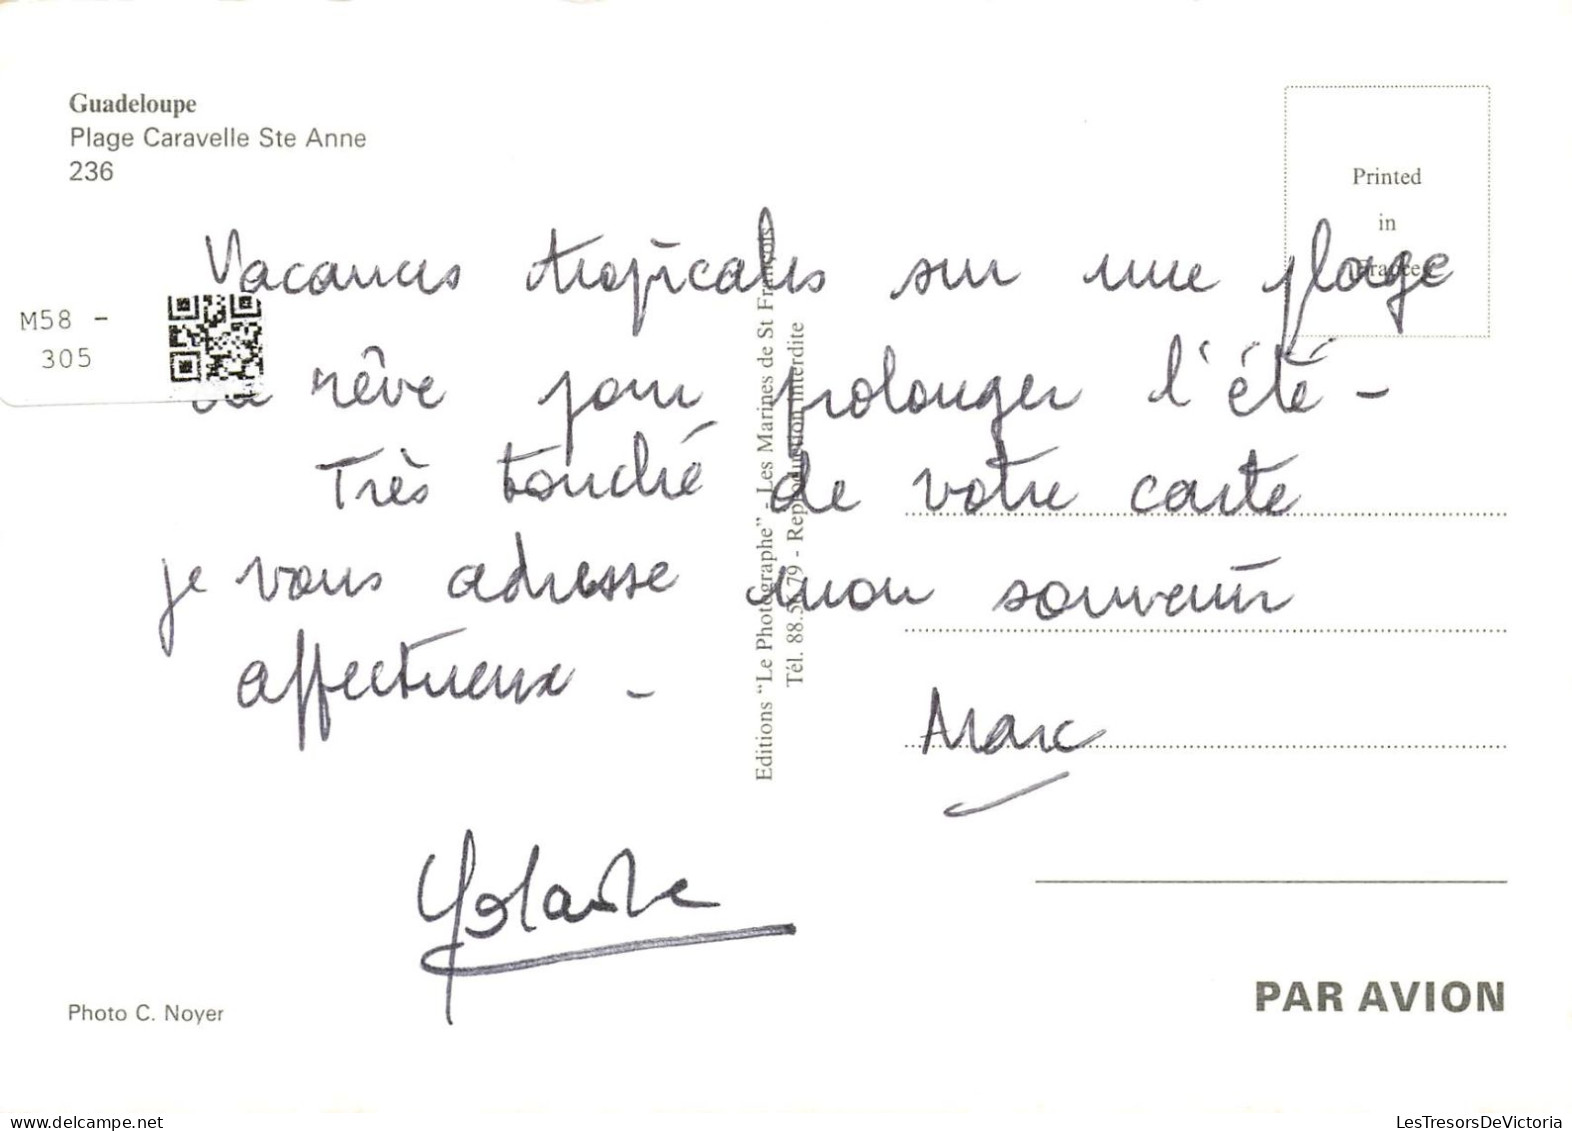 Guadeloupe
Plage Caravelle Ste Anne
236
Printed
in
France
M58 -
305
Vacances tropicales sur une plage
de rêve pour prolonger l'été -
Très touché de votre carte
je vous adresse mon souvenir
affectueux -
Marc
Yolande
Editions "Le Photographe" - Les Marines de St François
Tél. 88.58.79 - Reproduction interdite
Photo C. Noyer
PAR AVION
LesTresorsDeVictoria